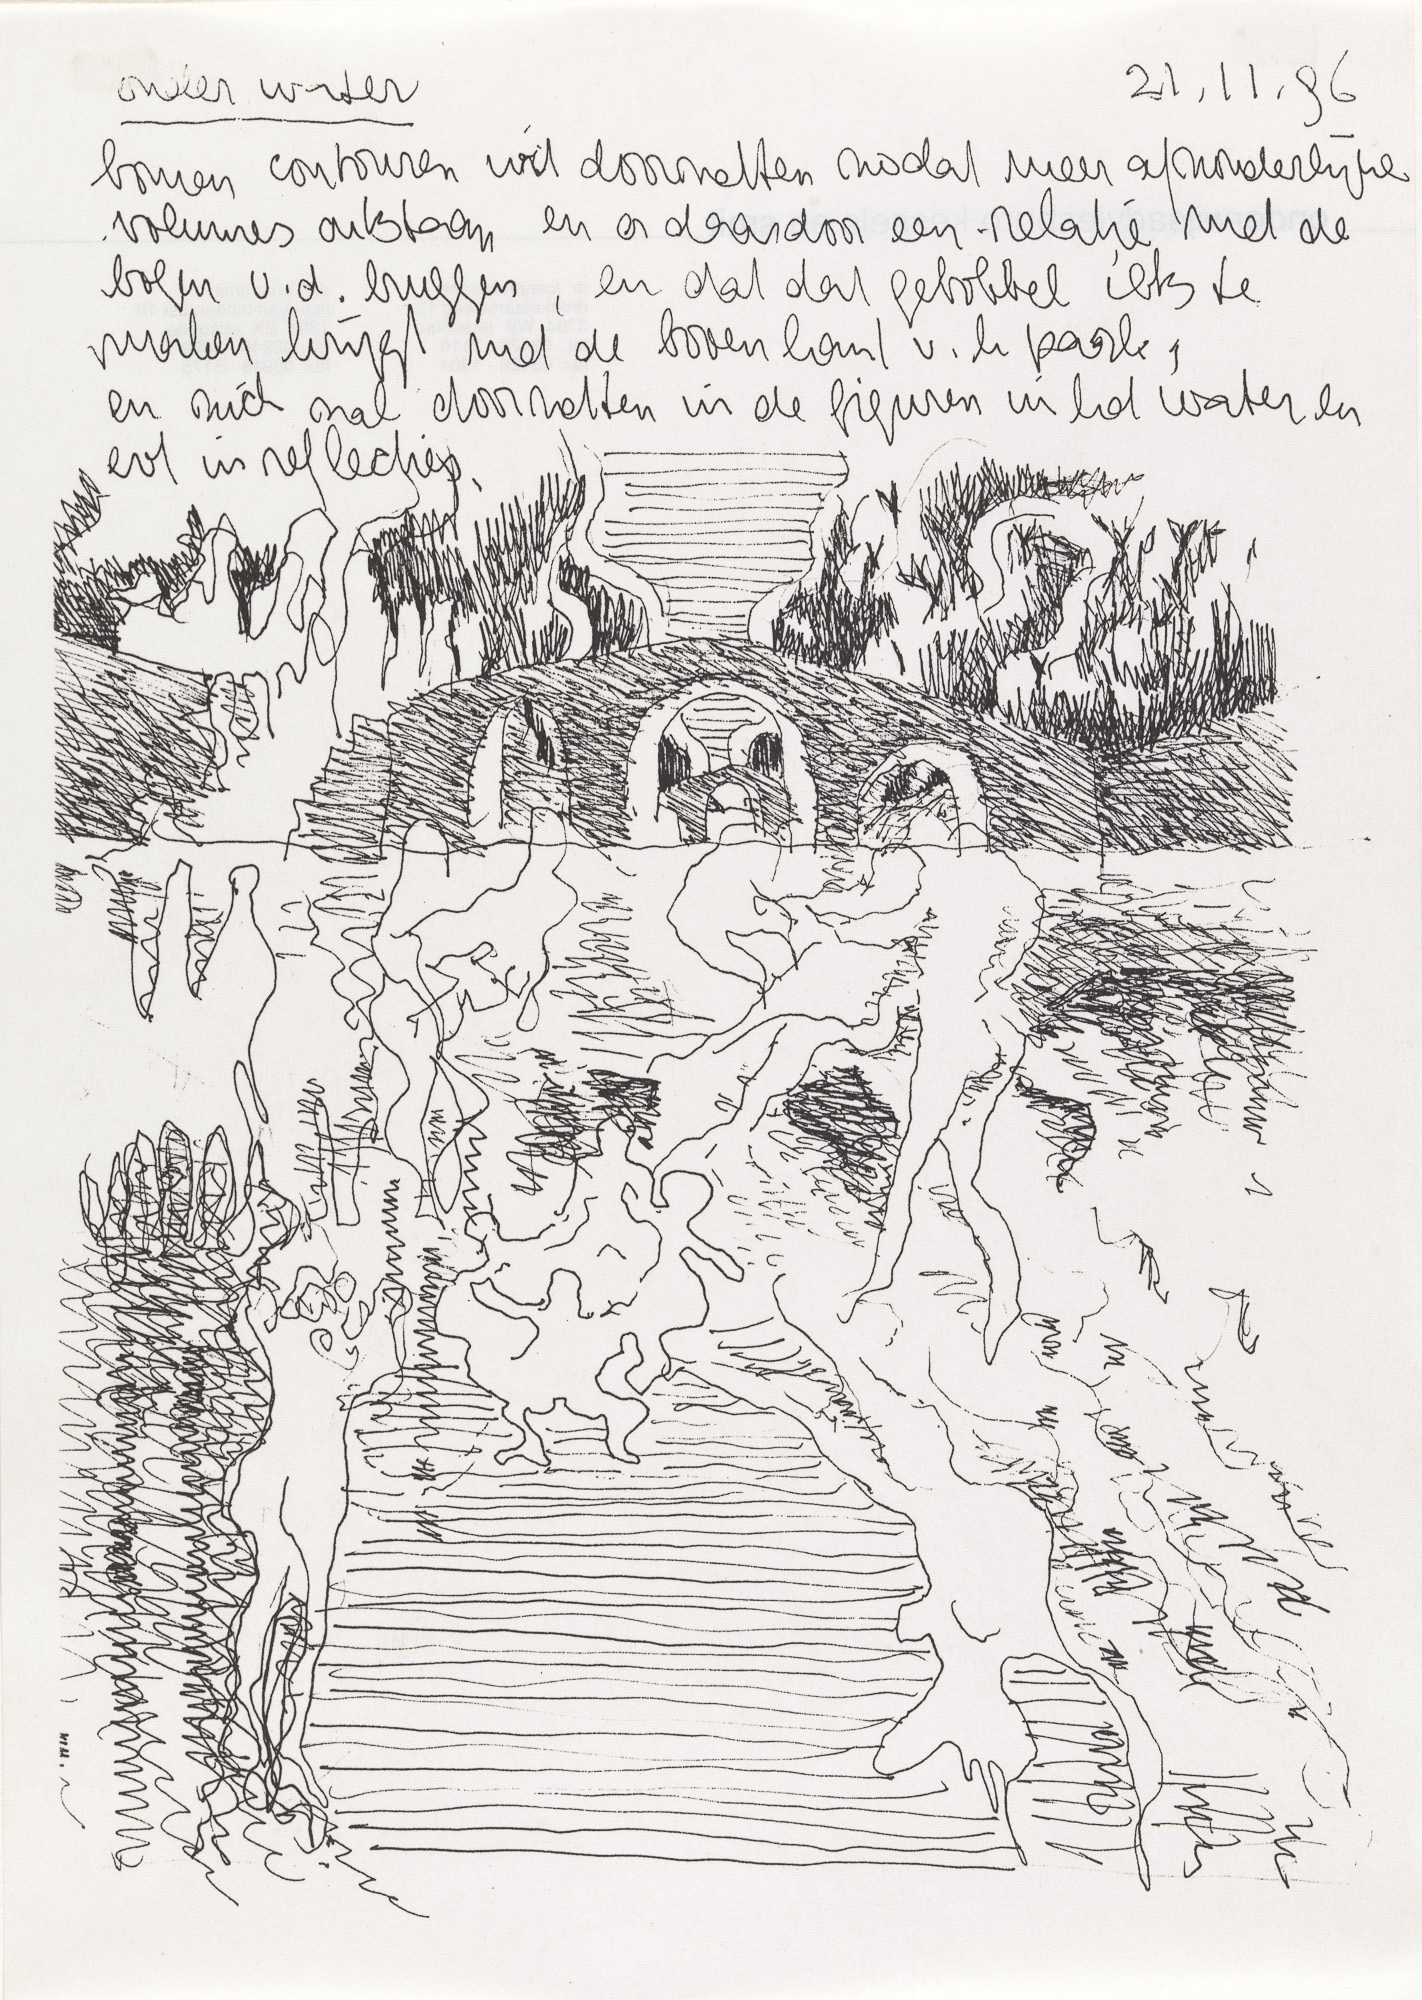 onder water
21.11.96
bomen contouren wit doorzetten zodat meer afzonderlijke
volumes ontstaan en daardoor een relatie met de
bogen v.d. bruggen, en dat dat gebobbel iets te
maken krijgt met de bovenkant v.h. park,
en zich zal doorzetten in de figuren in het water en
evt in reflecties.